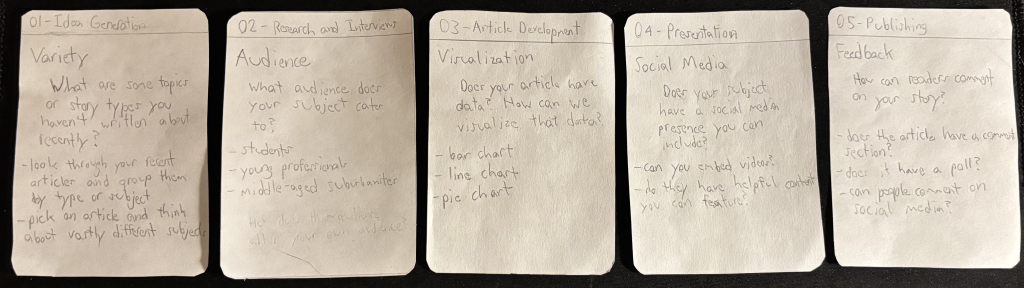 01-Idea Generation
Variety
What are some topics
or story types you
haven't written about
recently?
-look through your recent
articles and group them
by type or subject
-pick an article and think
about vastly different subjects
02-Research and Interviews
Audience
What audience does
your subject cater
to?
-students
-young professionals
-middle-aged suburbanites
your own audience?
03-Article Development
Visualization
Does your article have
data? How can we
visualize that data?
-bar chart
-line chart
-pie chart
04-Presentation
Social Media
Does your subject
have a social media
presence you can
include?
-can you embed videos?
-do they have helpful content
you can feature?
05-Publishing
Feedback
How can readers comment
on your story?
-does the article have a comment
section?
-does it have a poll?
-can people comment on
social media?